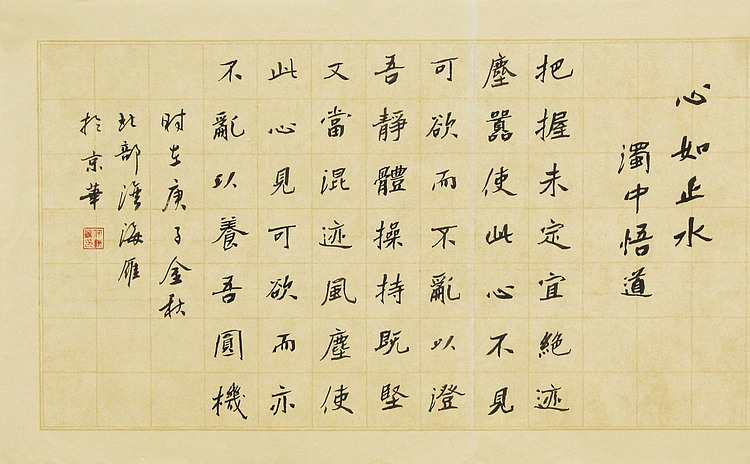 心如止水
濁中悟道
把握未定宜絶迹
塵囂使此心不見
可欲而不亂以澄
吾靜體操持既堅
又當混迹風塵使
此心見可欲而亦
不亂以養吾圓機
时在庚子金秋
北部湾海雁
於京華